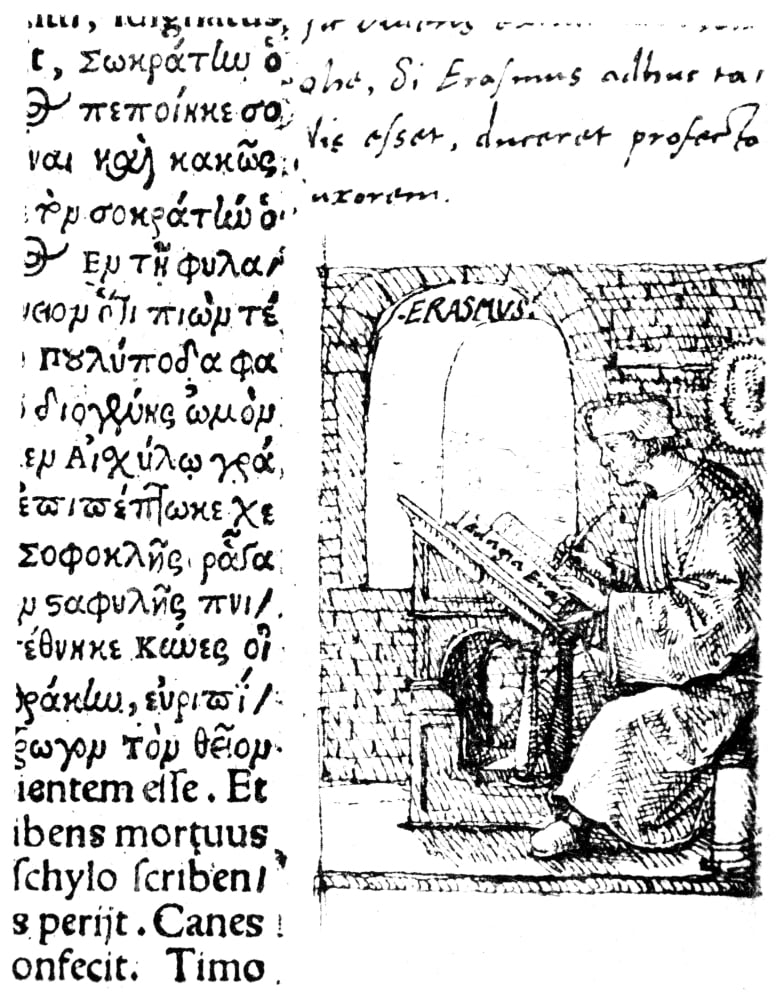 t, Σωκράτην ὁ
πεποίηκε σο
ναι καὶ κακῶς
τὸν σοκράτην ὁ
Ἐν τῇ φυλα/
νειον ὅτι πιὼν τέ
Πουλύποδα φα
διογένης ὠμὸν
εν Αἰσχύλῳ γρά
ἐπιπέπτωκε χε
Σοφοκλῆς ῥᾶγα
ν σταφυλῆς πνι/
έθνηκε Κύνες οἱ
θράκην, εὐριπί/
ρωγον Τὸν θεῖον
ientem eſſe. Et
ibens mortuus
ſchylo ſcriben/
s perijt. Canes
onfecit. Timo
ohe, Si Eraſmus adhuc ta
lis eſſet, duceret profecto
uxorem.
·ERASMVS·
Adagia Eraſ